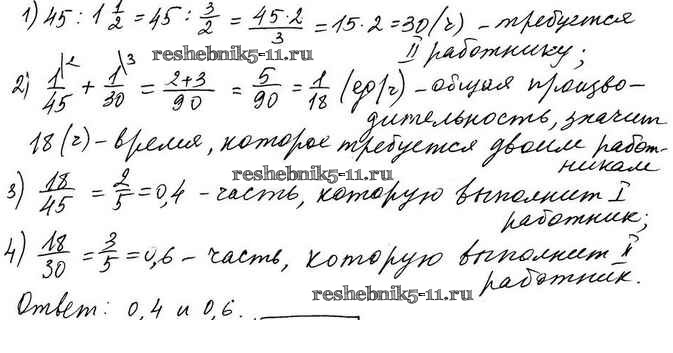 1) 45 : 1 1/2 = 45 : 3/2 = 45·2/3 = 15·2 = 30 (ч) – требуется
reshebnik5-11.ru
II работнику;
2) 1/45 \2 + 1/30 \3 = 2+3/90 = 5/90 = 1/18 (ед/ч) – общая произво-
дительность, значит
18 (ч) – время, которое требуется двоим работ-
никам
reshebnik5-11.ru
3) 18/45 = 2/5 = 0,4 – часть, которую выполнит I
работник;
4) 18/30 = 3/5 = 0,6 – часть, которую выполнит II
работник.
reshebnik5-11.ru
Ответ: 0,4 и 0,6.